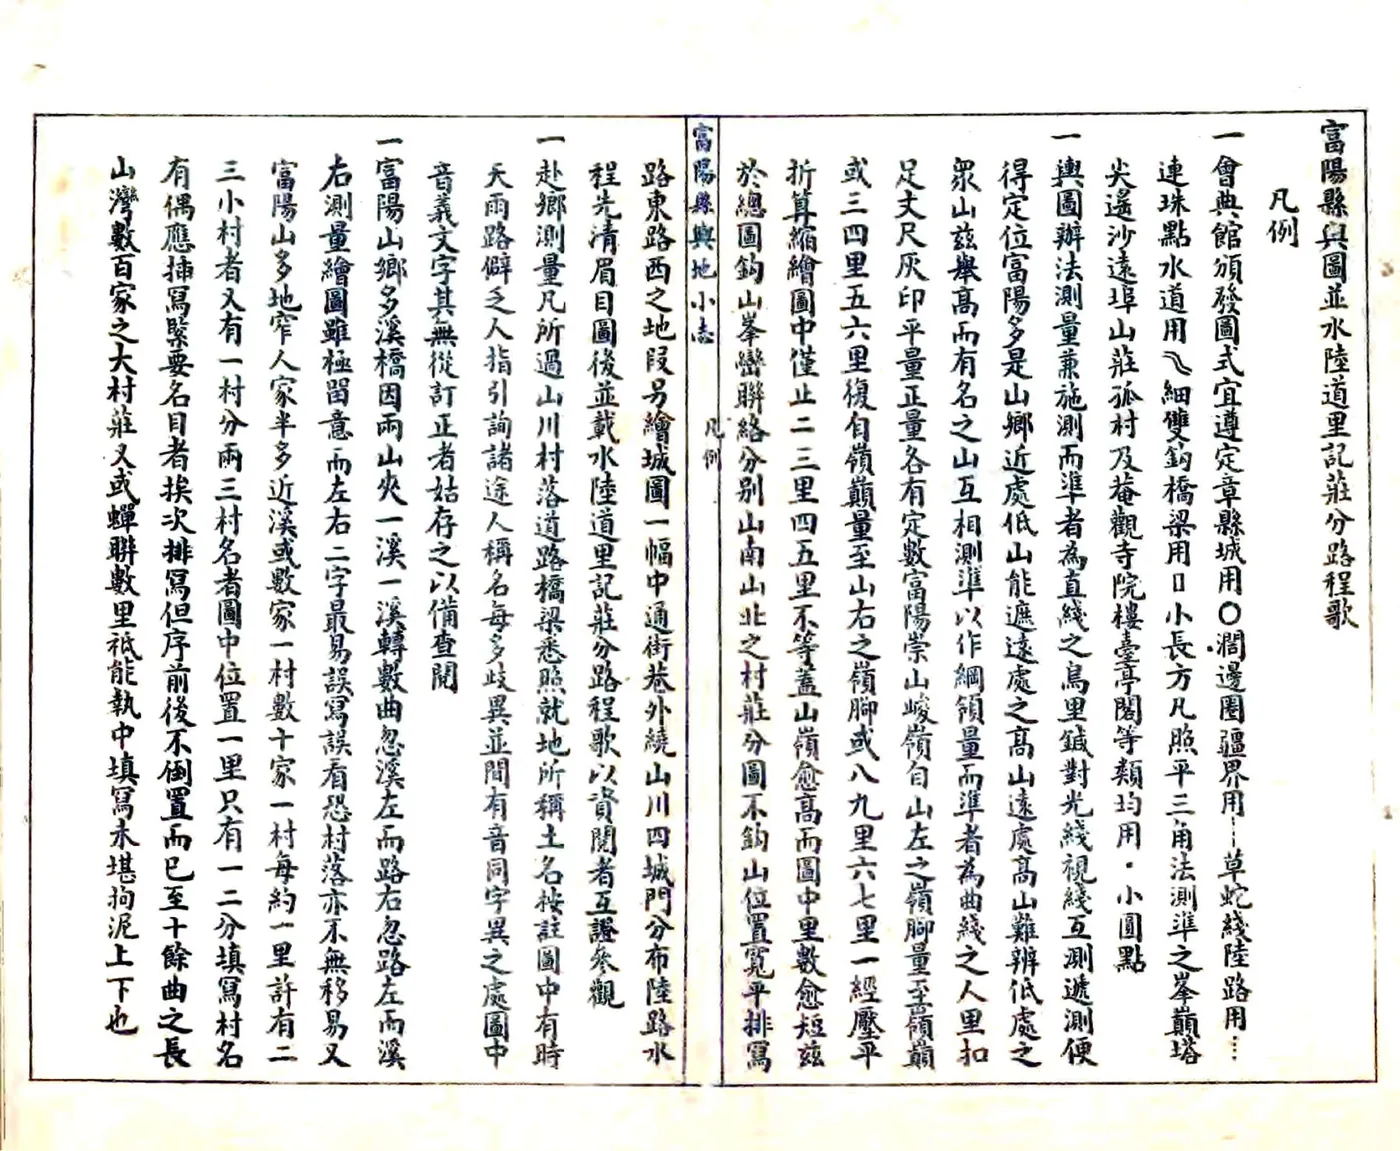 富陽縣輿圖並水陸道里記莊分路程歌
凡例
一會典館頒發圖式宜遵定章縣城用〇濶邊圈疆界用┈草蛇綫陸路用…
連珠點水道用〵細雙鈎橋梁用▯小長方凡照平三角法測準之峯巔塔
尖遙沙遠埠山莊孤村及菴觀寺院樓臺亭閣等類均用·小圓點
一輿圖辦法測量兼施測而準者為直綫之鳥里鍼對光綫視綫互測遞測便
得定位富陽多是山鄉近處低山能遮遠處之高山遠處高山難辨低處之
衆山茲舉高而有名之山互相測準以作綱領量而準者為曲綫之人里扣
足丈尺灰印平量正量各有定數富陽崇山峻嶺自山左之嶺腳量至嶺巔
或三四里五六里復自嶺巔量至山右之嶺腳或八九里六七里一經壓平
折算縮繪圖中僅止二三里四五里不等蓋山嶺愈高而圖中里數愈短茲
於總圖鈎山峯巒聯絡分别山南山北之村莊分圖不鈎山位置寬平排寫
富陽縣輿地小志
凡例
路東路西之地段另繪城圖一幅中通街巷外繞山川四城門分布陸路水
程先清眉目圖後並載水陸道里記莊分路程歌以資閱者互證參觀
一赴鄉測量凡所過山川村落道路橋梁悉照就地所稱土名按註圖中有時
天雨路僻乏人指引詢諸途人稱名每多歧異並間有音同字異之處圖中
音義文字其無從訂正者姑存之以備查閱
一富陽山鄉多溪橋因兩山夾一溪一溪轉數曲忽溪左而路右忽路左而溪
右測量繪圖雖極留意而左右二字最易誤寫誤看恐村落亦不無移易又
富陽山多地窄人家半多近溪或數家一村數十家一村每約一里許有二
三小村者又有一村分兩三村名者圖中位置一里只有一二分填寫村名
有偶應插寫緊要名目者挨次排寫但序前後不倒置而已至十餘曲之長
山灣數百家之大村莊又或蟬聯數里祗能執中填寫未堪拘泥上下也